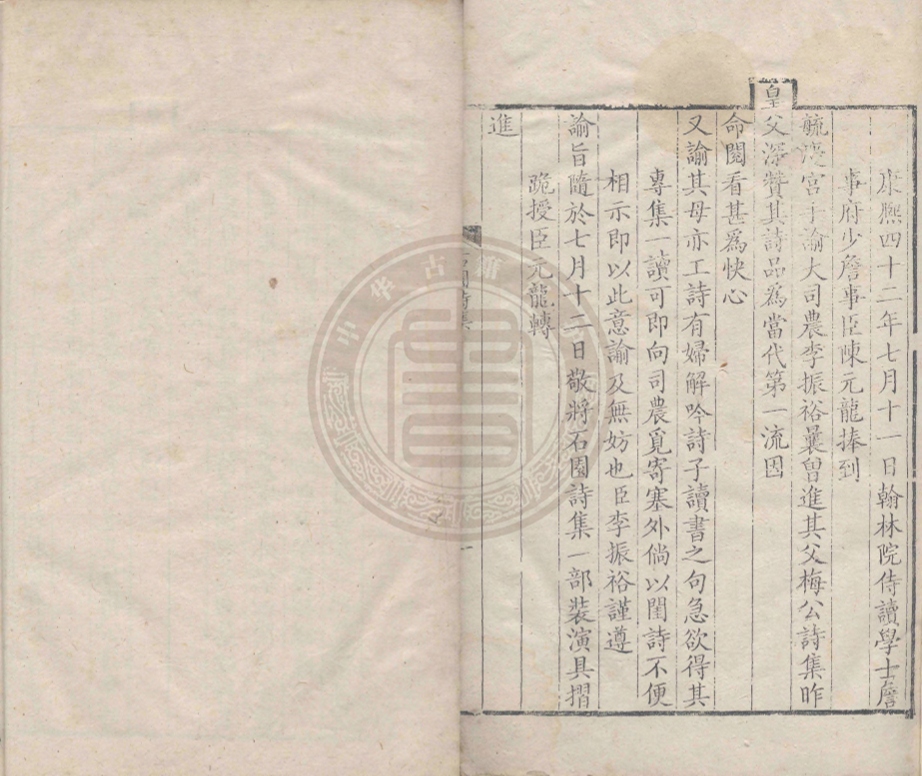 康熙四十二年七月十一日翰林院侍讀學士詹
事府少詹事臣陳元龍捧到
毓慶宮手諭大司農李振裕曩曾進其父梅公詩集昨
皇父深贊其詩品為當代第一流因
命閱看甚為快心
又諭其母亦工詩有婦解吟詩子讀書之句急欲得其
專集一讀可即向司農覓寄塞外倘以閨詩不便
相示即以此意諭及無妨也臣李振裕謹遵
諭旨隨於七月十二日敬將石園詩集一部裝演具摺
跪授臣元龍轉
進
石園詩集
一
中华古籍